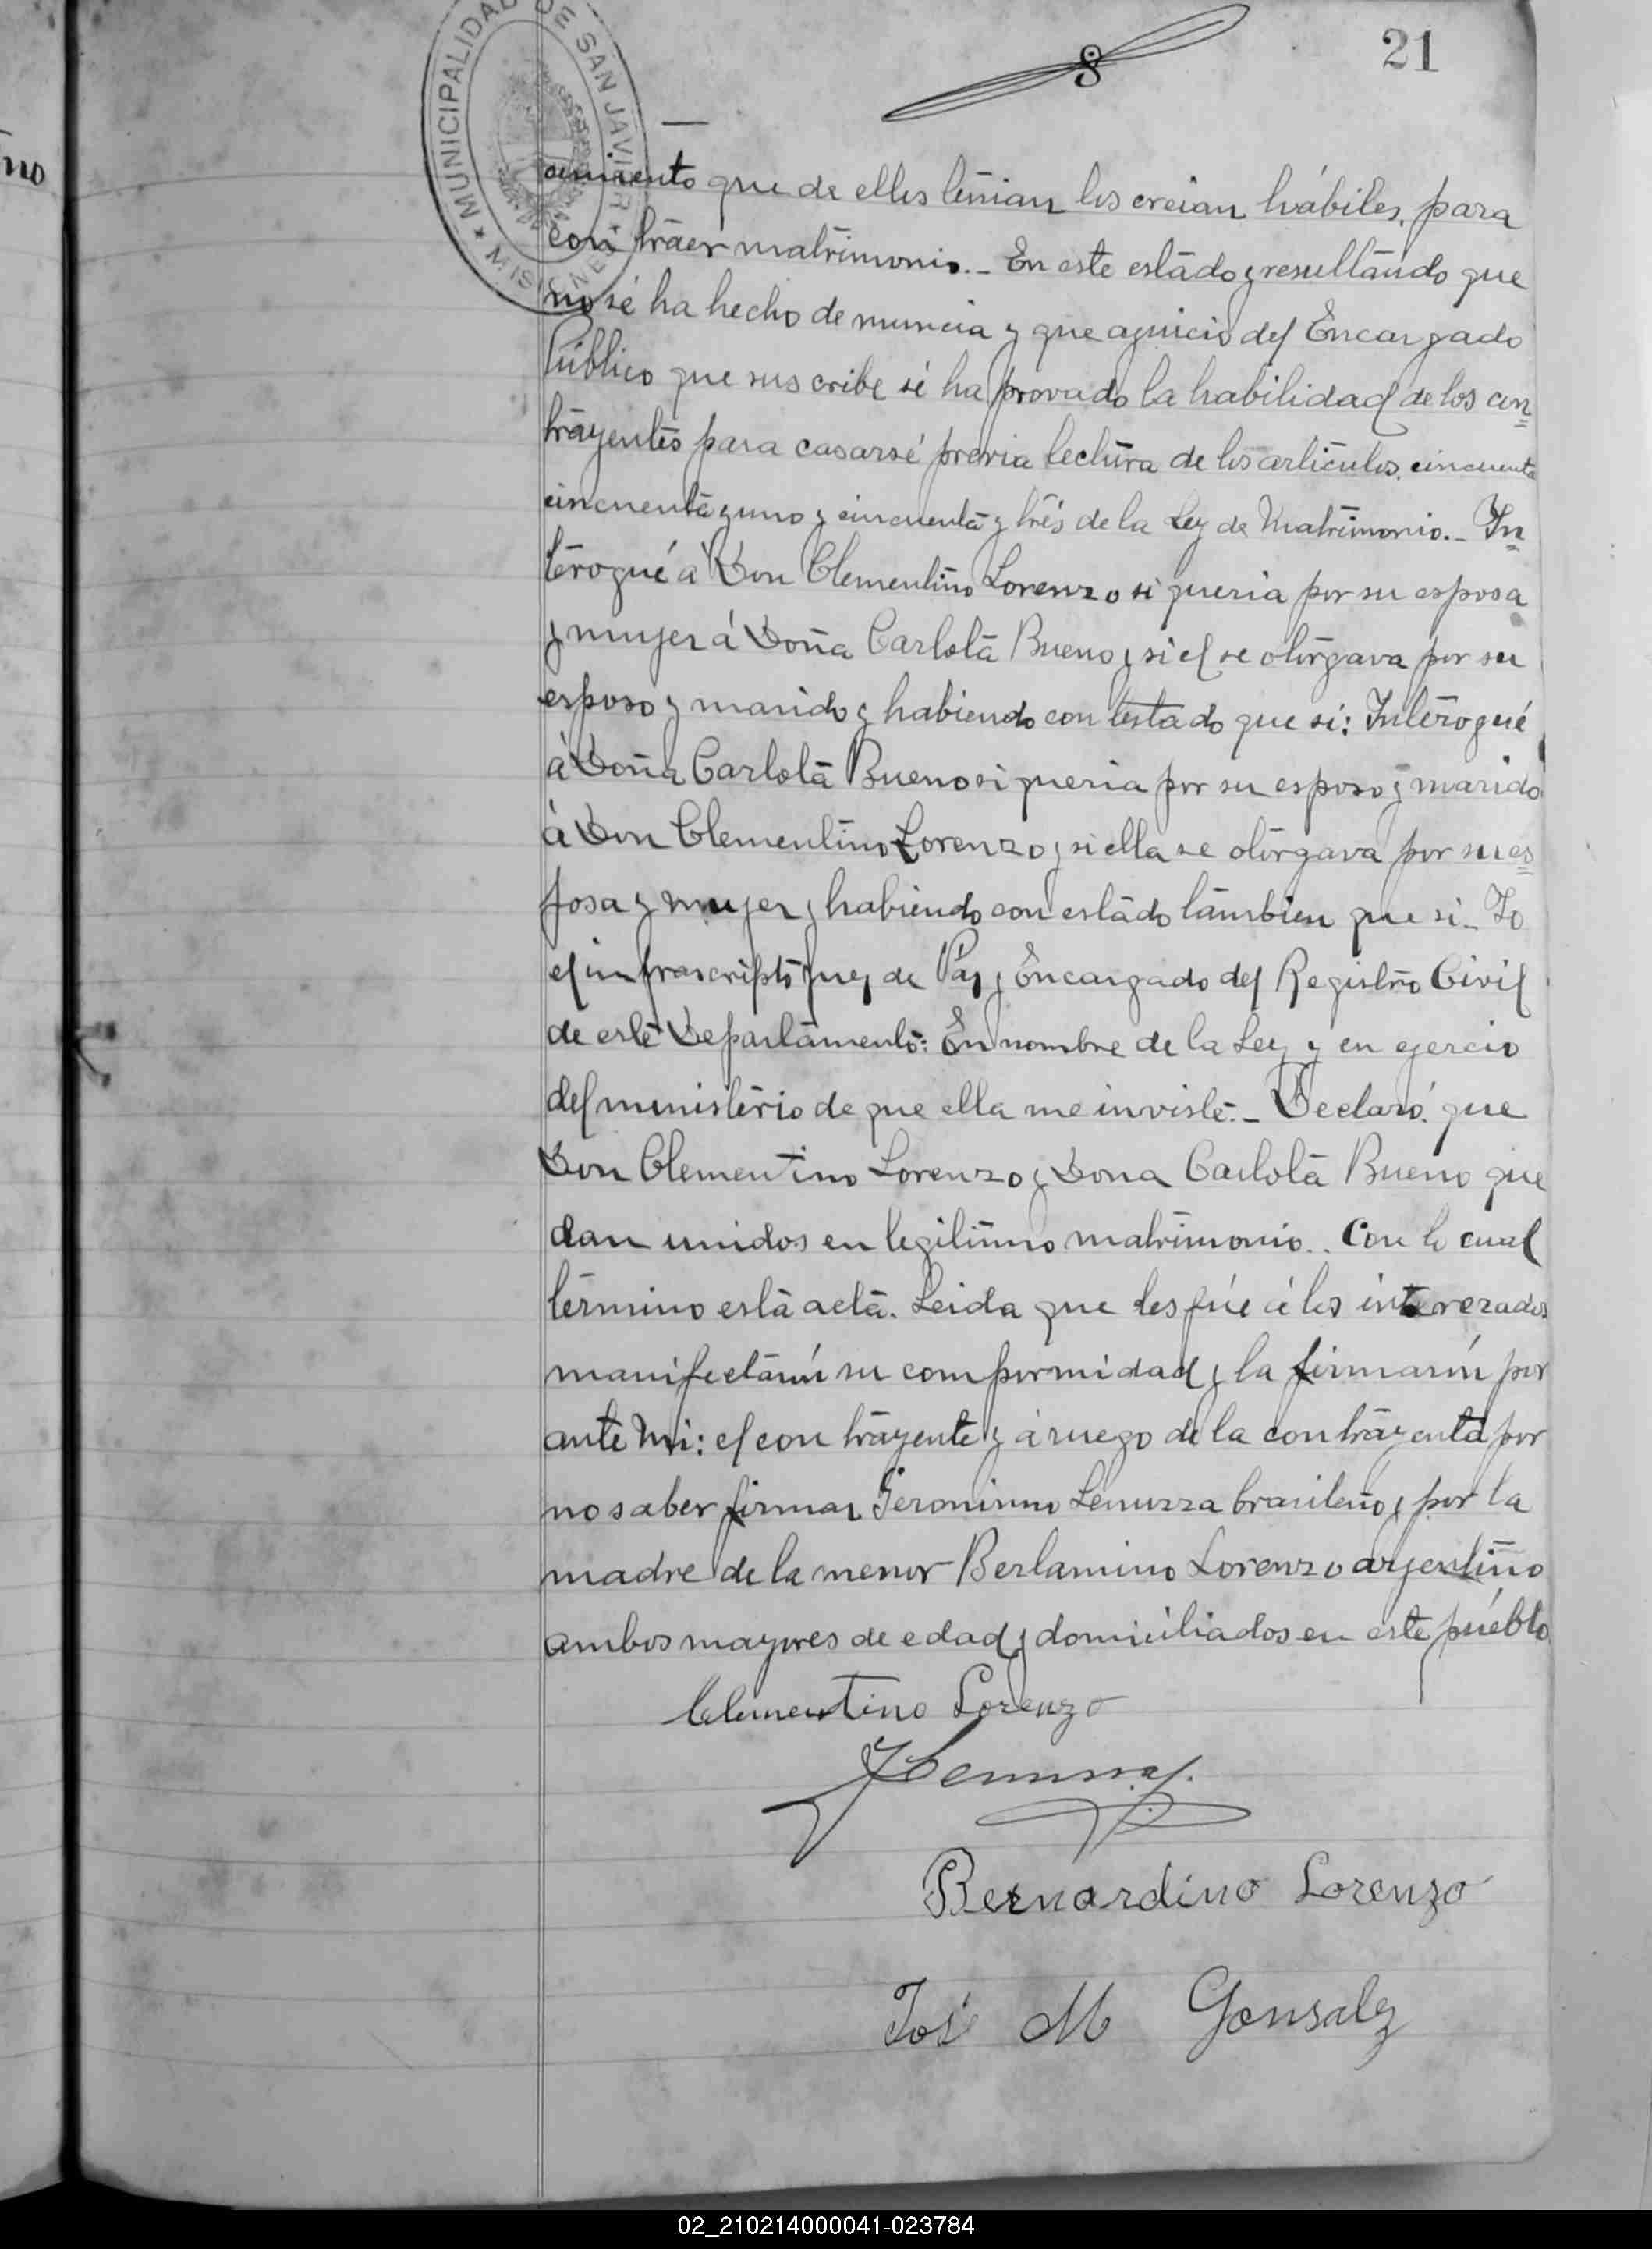 MUNICIPALIDAD DE SAN JAVIER * MISIONES *
8
21
no
cimiento que de ellos tenian los creian hábiles, para
contraer matrimonio.- En este estado y resultando que
no sé ha hecho denuncia y que ajuicio del Encargado
Público que suscribe sé ha provado la habilidad de los con=
trayentes para casarsé previa lectura de los articulos cincuenta
cincuenta y uno y cincuenta y trés de la Ley de Matrimonio.- In=
terogué á Don Clementino Lorenzo si queria por su esposa
y mujer á Doña Carlota Bueno y si el se otorgava por su
esposo y marido y habiendo contestado que si: Interogué
á Doña Carlota Bueno si queria por su esposo y marido
á Don Clementino Lorenzo y si ella se otorgava por su es=
posa y mujer y habiendo conestado tambien que si- Yo
el infrascripto Juez de Paz y Encargado del Registro Civil
de este Departamento: En nombre de la Ley y en ejercio
del ministerio de que ella me inviste.- Declaró que
Don Clementino Lorenzo y Dona Carlota Bueno que
dan unidos en legitimo matrimonio.. Con lo cual
termino esta acta. Leida que les fúe á los interezados
su comformidad y la firmarón por
ante Mi: el contrayente y á ruego de la contrayenta por
no saber firmar Jeronimo brasileño y por la
madre de la menor Berlamino Lorenzo argentino
ambos mayores de edad y domiciliados en este púeblo
Clementino Lorenzo
Bernardino Lorenzo
José M Gonsalz
02_210214000041-023784